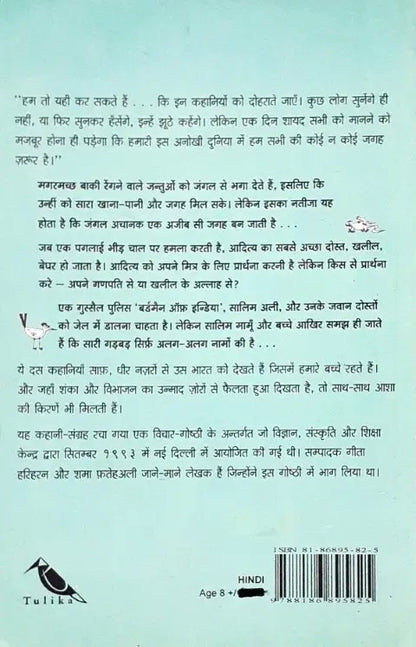 "हम तो यही कर सकते हैं . . . कि इन कहानियों को दोहराते जाएँ। कुछ लोग सुनेंगे ही
नहीं, या फिर सुनकर हँसेंगे, इन्हें झूठे कहेंगे। लेकिन एक दिन शायद सभी को मानने को
मजबूर होना ही पड़ेगा कि हमारी इस अनोखी दुनिया में हम सभी की कोई न कोई जगह
ज़रूर है।"
मगरमच्छ बाकी रेंगने वाले जन्तुओं को जंगल से भगा देते हैं, इसलिए कि
उन्हीं को सारा खाना-पानी और जगह मिल सके। लेकिन इसका नतीजा यह
होता है कि जंगल अचानक एक अजीब सी जगह बन जाती है . . .
जब एक पगलाई भीड़ चाल पर हमला करती है, आदित्य का सबसे अच्छा दोस्त, खलील,
बेघर हो जाता है। आदित्य को अपने मित्र के लिए प्रार्थना करनी है लेकिन किस से प्रार्थना
करे – अपने गणपति से या खलील के अल्लाह से?
एक गुस्सैल पुलिस 'बर्डमैन ऑफ़ इन्डिया', सालिम अली, और उनके जवान दोस्तों
को जेल में डालना चाहता है। लेकिन सालिम मामूँ और बच्चे आखिर समझ ही जाते
हैं कि सारी गड़बड़ सिर्फ़ अलग-अलग नामों की है . . .
ये दस कहानियाँ साफ़, धीर नज़रों से उस भारत को देखते हैं जिसमें हमारे बच्चे रहते हैं।
और जहाँ शंका और विभाजन का उन्माद ज़ोरों से फैलता हुआ दिखता है, तो साथ-साथ आशा
की किरणें भी मिलती हैं।
यह कहानी-संग्रह रचा गया एक विचार-गोष्ठी के अन्तर्गत जो विज्ञान, संस्कृति और शिक्षा
केन्द्र द्वारा सितम्बर १९९३ में नई दिल्ली में आयोजित की गई थी। सम्पादक गीता
हरिहरन और शमा फ़तेहअली जाने-माने लेखक हैं जिन्होंने इस गोष्ठी में भाग लिया था।
ISBN 81-86895-82-5
HINDI
Age 8 +/
9788186895825
Tulika